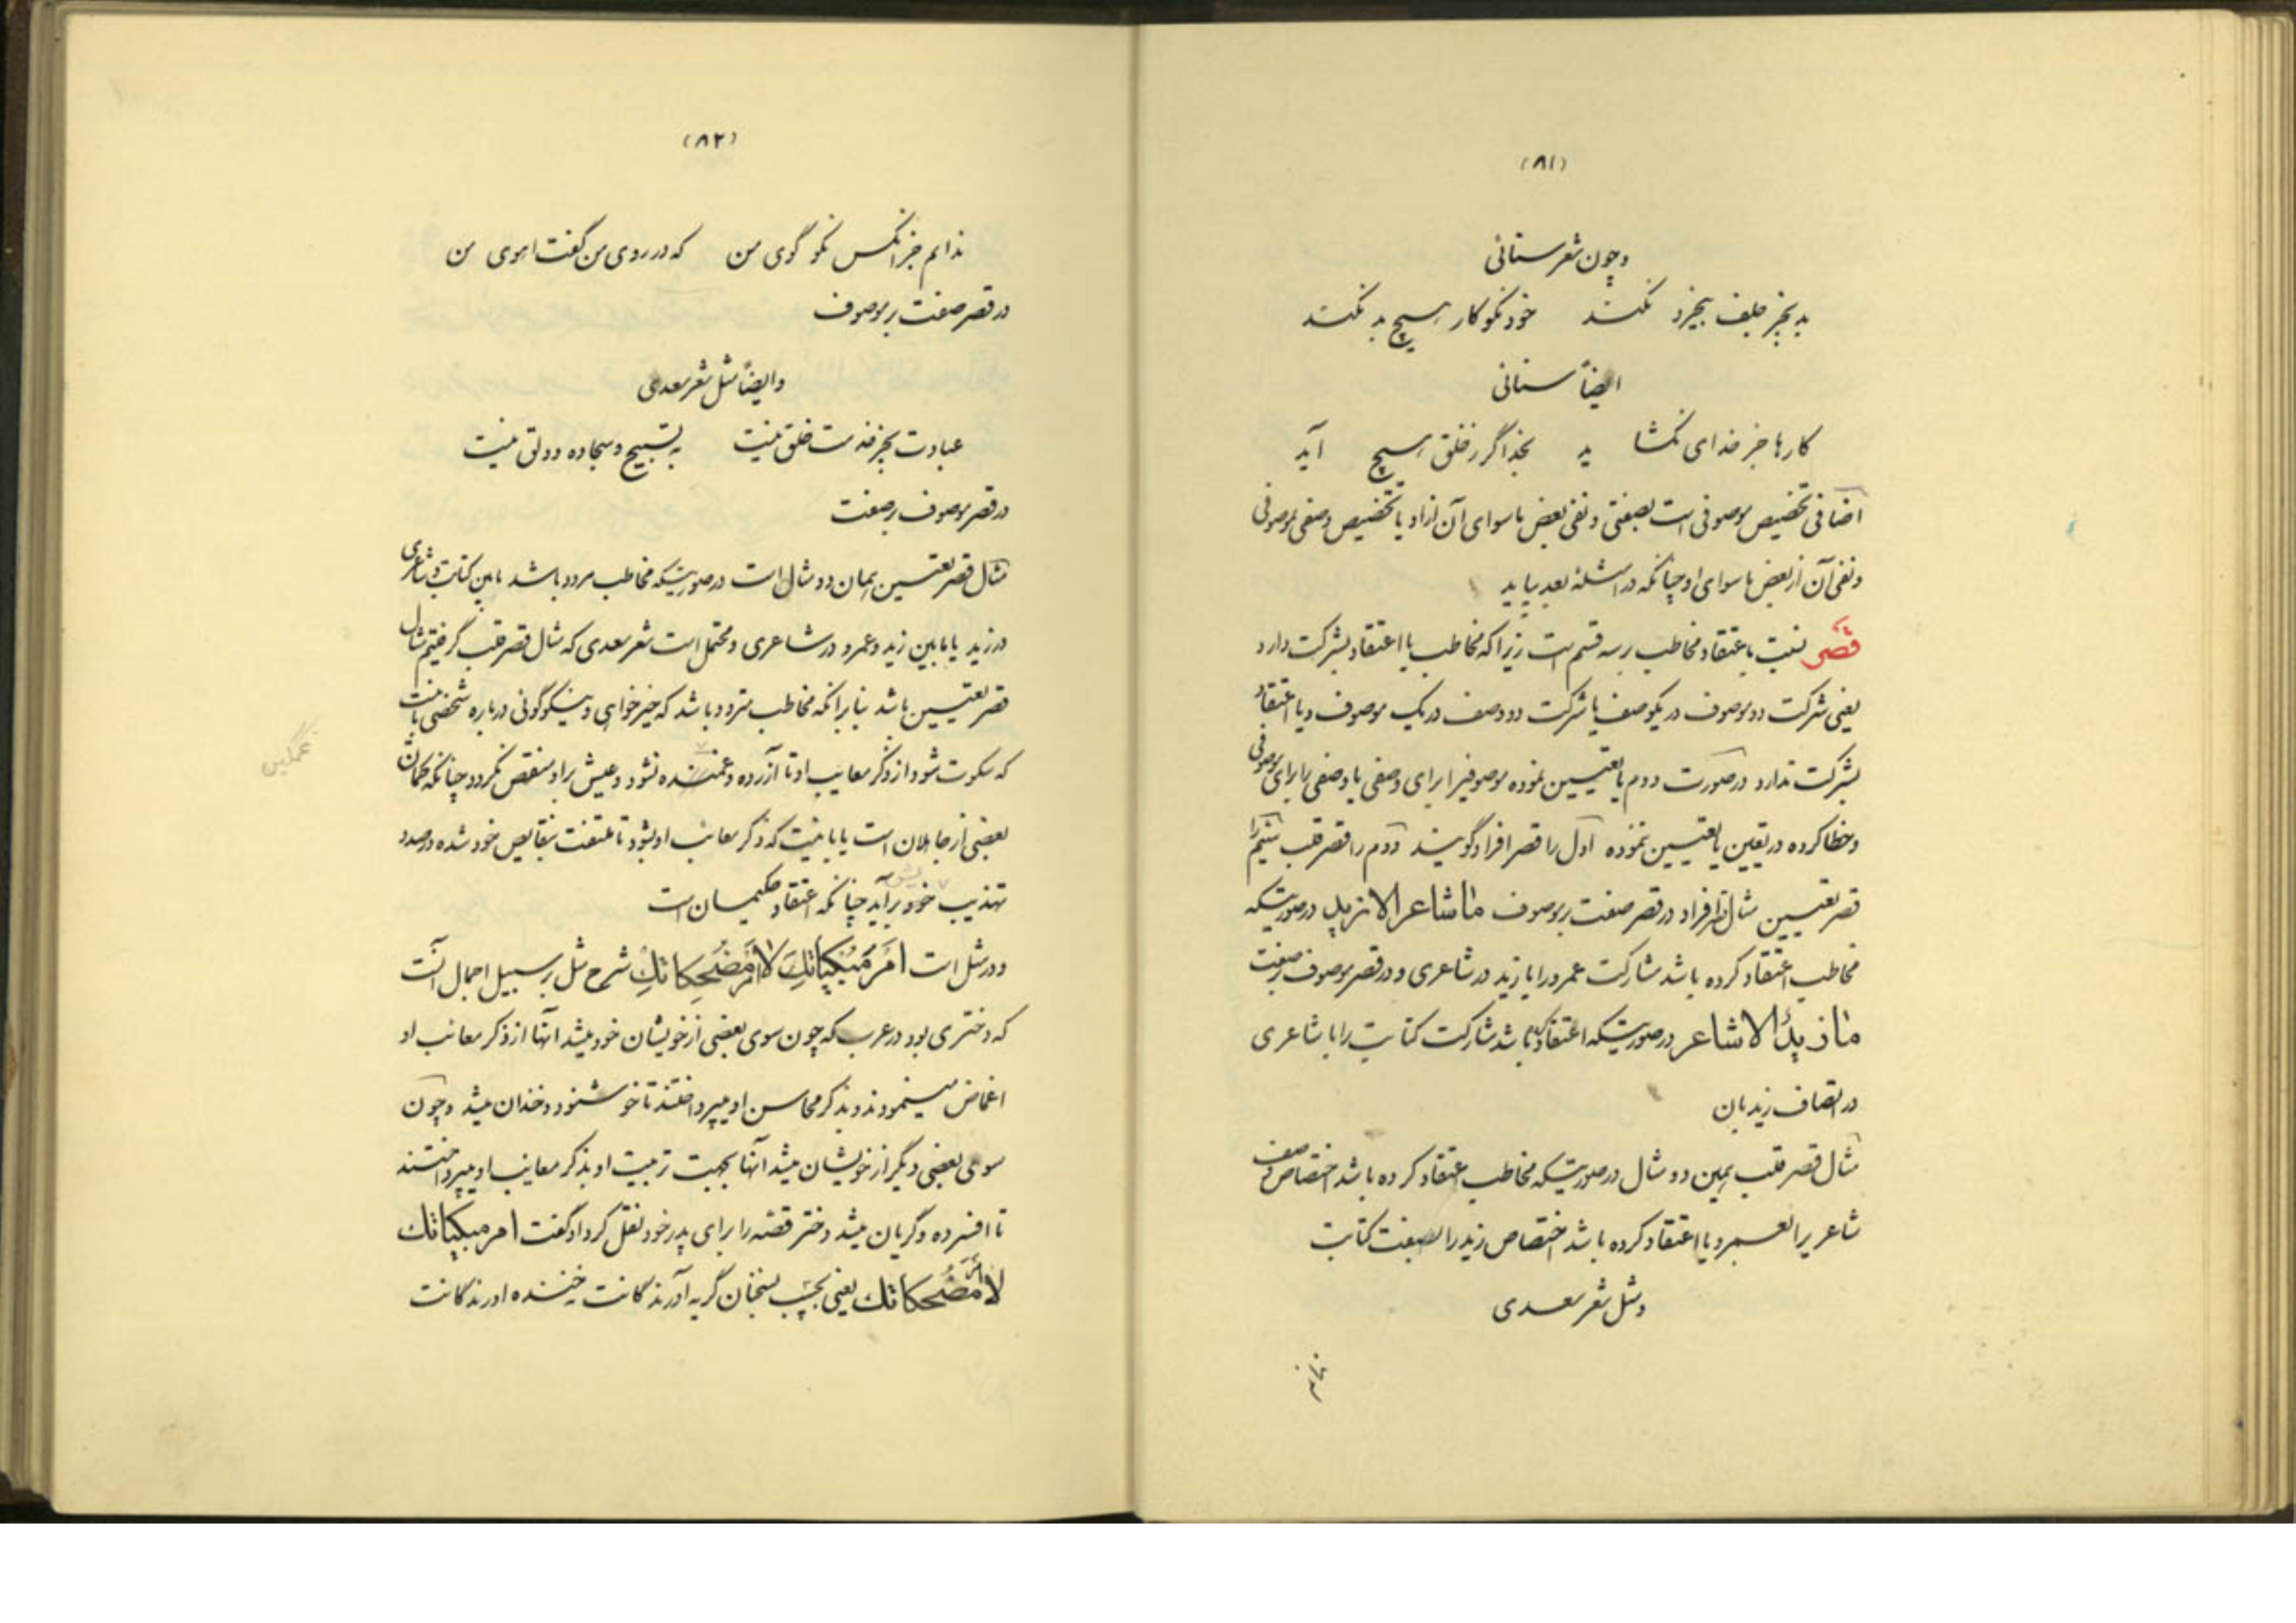 (۸۱)
و چون شعر سنائی
بد بجز جلف بیخرد نکند خود نکو کار هیچ بد نکند
ایضاً سنائی
کارها جز خدای نگشاید بخدا گر ز خلق هیچ آید
اضافی تخصیص موصوفی است بصفتی و نفی بعض ماسوای آن از او یا تخصیص وصفی بموصوفی
و نفی آن از بعض ماسوای او چنانکه در امثله بعد بیاید
قصر نسبت باعتقاد مخاطب بر سه قسم است زیرا که مخاطب یا اعتقاد بشرکت دارد
یعنی شرکت دو موصوف در یک وصف یا شرکت دو وصف در یک موصوف و یا اعتقاد
بشرکت ندارد در صورت دوم یا تعیین نموده موصوفیرا برای وصفی یا وصفی را برای موصوفی
و خطا کرده در تعیین یا تعیین ننموده اول را قصر افراد گویند دوم را قصر قلب سیم را
قصر تعیین مثال قصر افراد در قصر صفت بر موصوف ما شاعر الا زید در صورتیکه
مخاطب اعتقاد کرده باشد مشارکت عمرو را با زید در شاعری و در قصر موصوف بر صفت
ما زیدٌ الا شاعر در صورتیکه اعتقاد کرده باشد مشارکت کتابت را با شاعری
در اتصاف زید بان
مثال قصر قلب همین دو مثال در صورتیکه مخاطب اعتقاد کرده باشد اختصاص وصف
شاعریرا بعمرو یا اعتقاد کرده باشد اختصاص زید را بصفت کتابت
و مثل شعر سعدی
ندانم
(۸۲)
ندانم جز آنکس نکو گوی من که در روی من گفت اهوی من
در قصر صفت بر موصوف
و ایضاً مثل شعر سعدی
عبادت بجز خدمت خلق نیست به تسبیح و سجاده و دلق نیست
در قصر موصوف بر صفت
مثال قصر تعیین همان دو مثال است در صورتیکه مخاطب مردد باشد مابین کتابت و شاعری
در زید یا مابین زید و عمرو در شاعری و محتمل است شعر سعدی که مثال قصر قلب گرفتیم مثال
قصر تعیین باشد بنابر آنکه مخاطب متردد باشد که خیر خواهی و نیکوگوئی درباره شخصی بآنست
که سکوت شود از ذکر معایب او تا آزرده و غمنده نشود و عیش بر او منغص نگردد چنانکه گمان
بعضی از جاهلان است یا بآنست که ذکر معایب او بشود تا ملتفت بنقایص خود شده در صدد
تهذیب خود برآید چنانکه اعتقاد حکیمان است
غمگین
یش
و در مثل است امرَ مُبکیاتِكِ لا امرَ مُضحِکاتِكِ شرح مثل بر سبیل اجمال آنست
که دختری بود در عرب که چون سوی بعضی از خویشان خود میشد آنها از ذکر معایب او
اغماض مینمودند و بذکر محاسن او میپرداختند تا خوشنود و خندان میشد و چون
سوی بعضی دیگر از خویشان میشد آنها بجهت تربیت او بذکر معایب او میپرداختند
تا افسرده و گریان میشد دختر قصه را برای پدر خود نقل کرد او گفت امر مبکیاتك
لا امر مُضحکاتك یعنی بچسب بسخنان گریه آورندگانت نه خنده آورندگانت